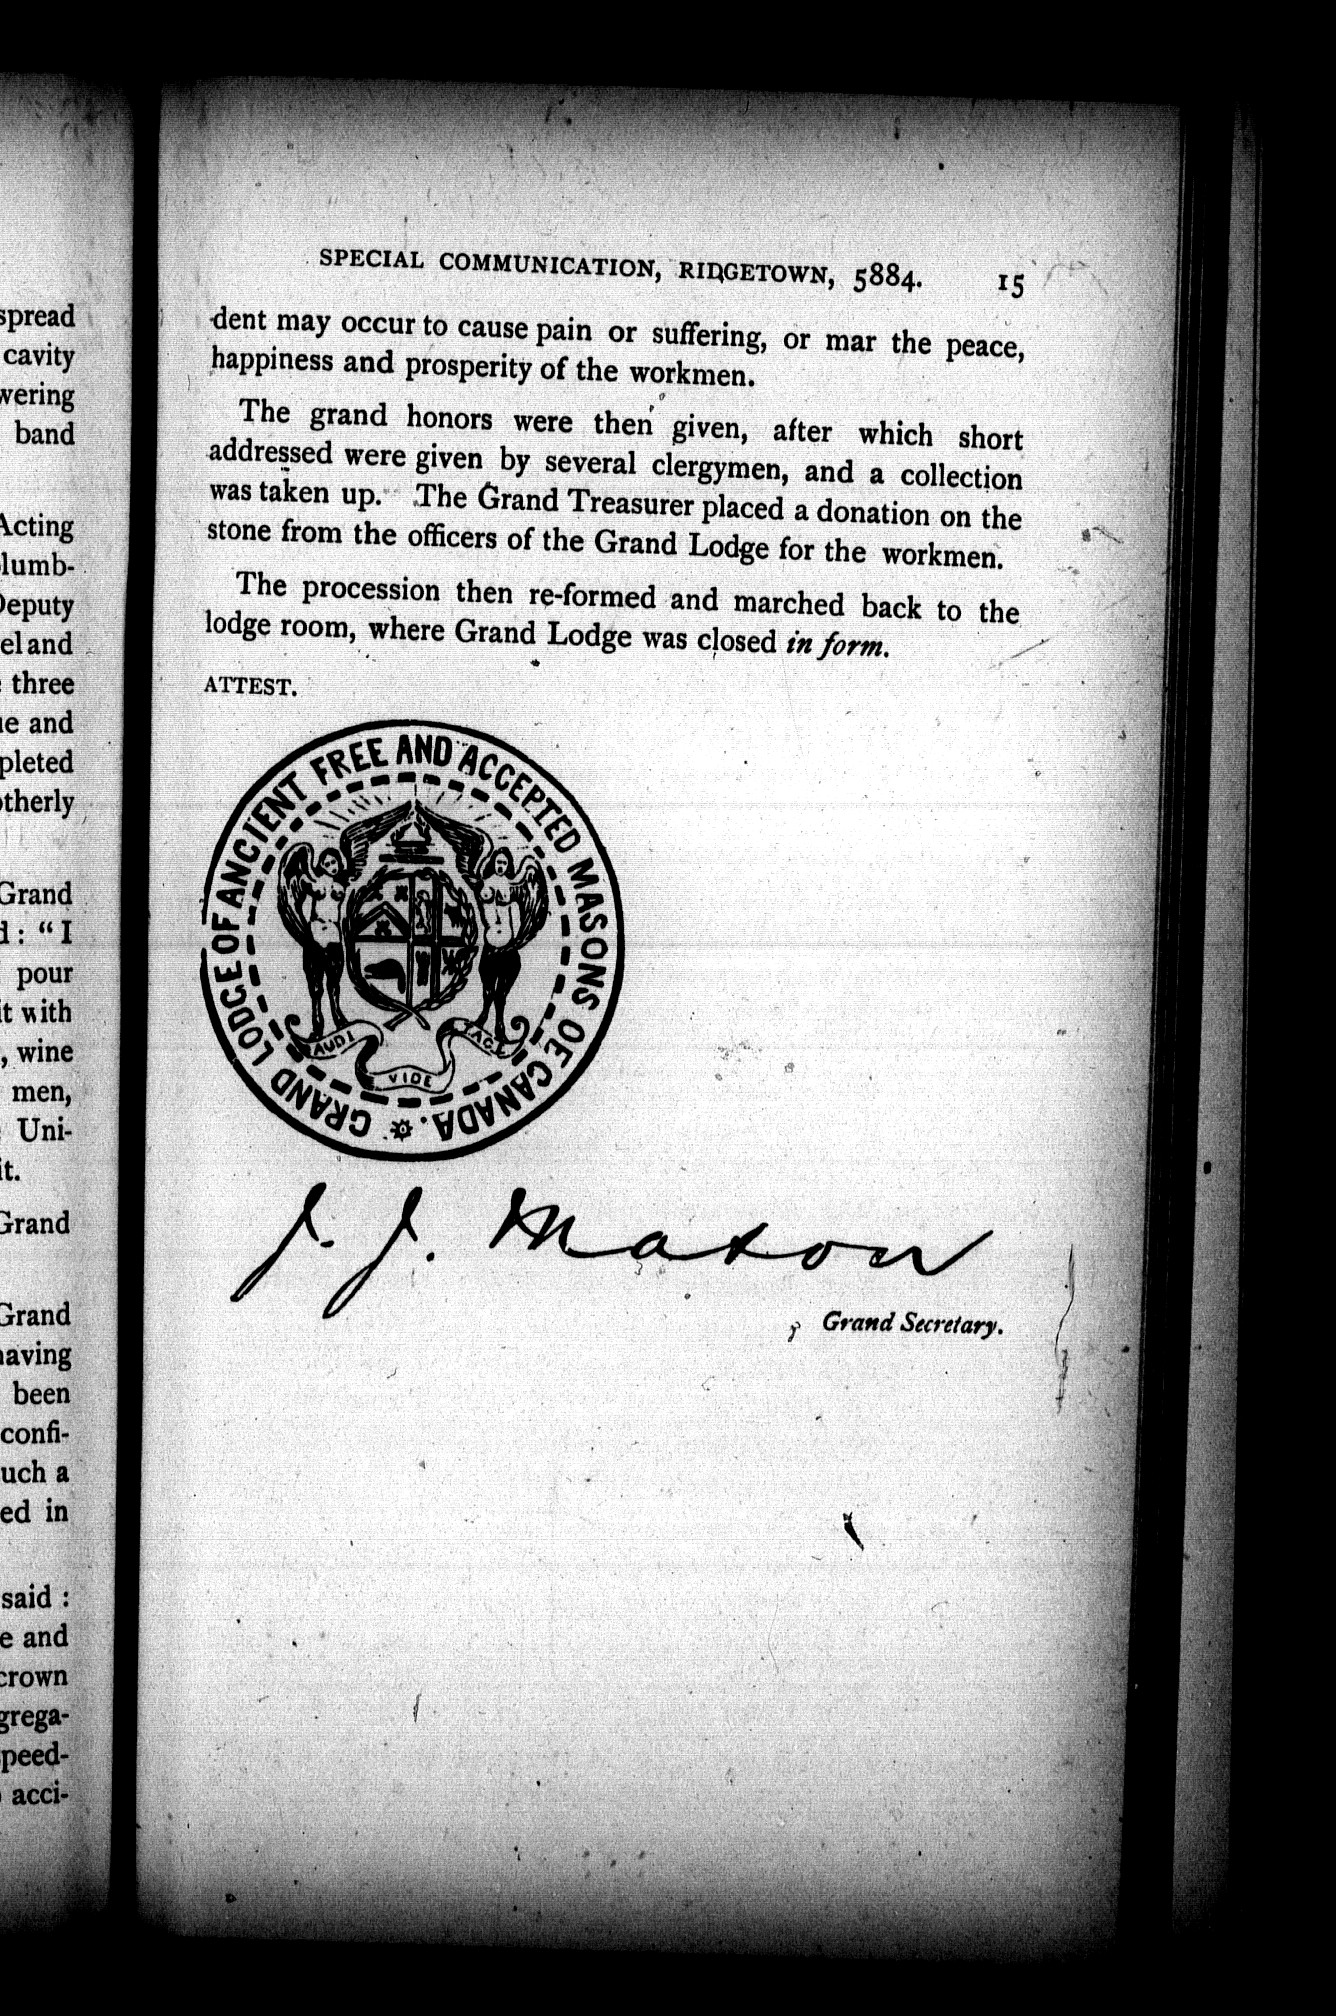 spread
cavity
wering
band
Acting
lumb-
Deputy
el and
three
ue and
pleted
otherly
Grand
d: “I
pour
it with
, wine
men,
Uni-
it.
Grand
Grand
having
been
confi-
uch a
ed in
said :
e and
crown
grega-
speed-
acci-
SPECIAL COMMUNICATION, RIDGETOWN, 5884. 15
dent may occur to cause pain or suffering, or mar the peace,
happiness and prosperity of the workmen.
The grand honors were then given, after which short
addressed were given by several clergymen, and a collection
was taken up. The Grand Treasurer placed a donation on the
stone from the officers of the Grand Lodge for the workmen.
The procession then re-formed and marched back to the
lodge room, where Grand Lodge was closed in form.
ATTEST.
GRAND LODGE OF ANCIENT FREE AND ACCEPTED MASONS OF CANADA.
AUDI VIDE TACE
J. J. Mason
Grand Secretary.